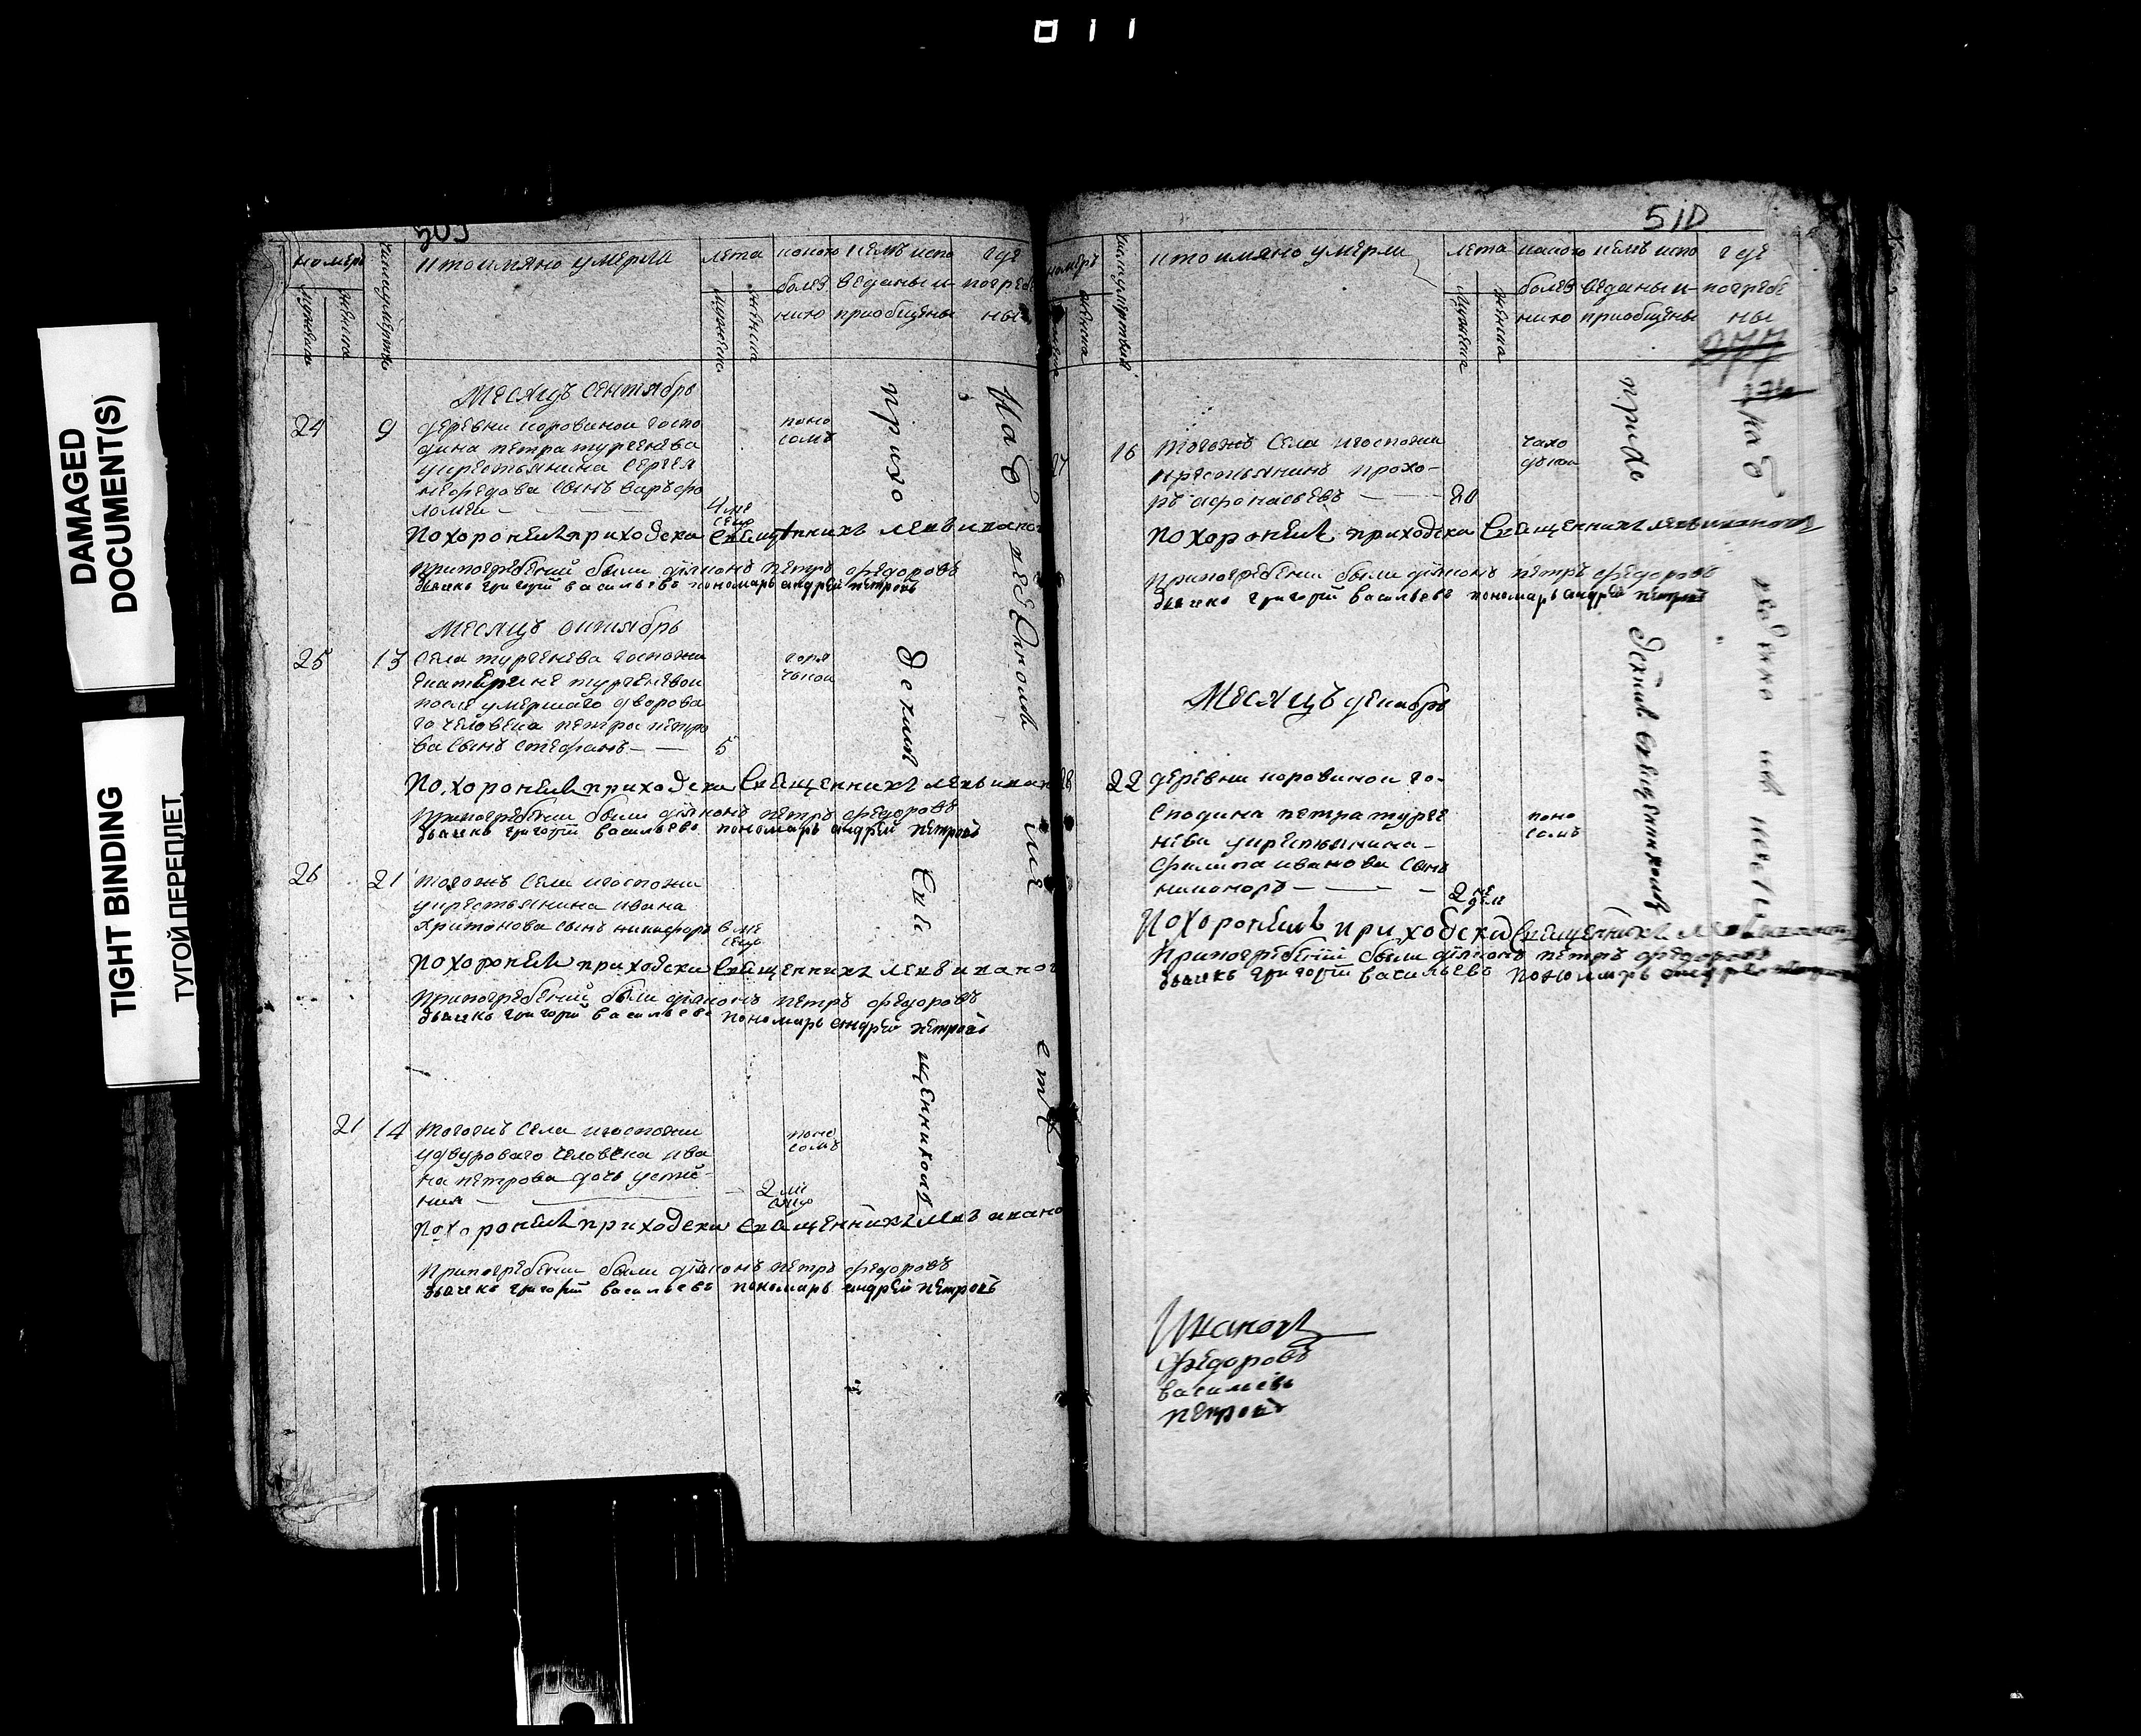 011
DAMAGED
DOCUMENT(S)
TIGHT BINDING
ТУГОЙ ПЕРЕПЛЕТ
номеръ
мужеска
женска
кто имяно умерли
лета
мужеска
женска
какою
болез
нию
кемъ испо
веданы и
приобщены
где
погребе
ны
Месяцъ сентябрь
24 9 деревни коровиной госпо
дина петра тургенева
укрестьянина сергея
нефедова сынъ варъфо
ломеи
4 ме
сецо
поно
сомъ
похоронилъ приходски священникъ
припогребении были диаконъ петръ федоровъ
дьячекъ григорий васильевъ пономарь андрей петровъ
Месяцъ октябрь
25 13 села тургенева госпожи
екатерине тургеневой
после умершаго дворова
го человека петра петро
ва сынъ стефанъ 5
горя
чкой
похоронилъ приходски священникъ
припогребении были диаконъ петръ федоровъ
дьячекъ григорий васильевъ пономарь андрей петровъ
26 21 тогожъ села игоспожи
укрестьянина ивана
харитонова сынъ никифоръ
6 ме
сецо
похоронилъ приходски священникъ
припогребении были диаконъ петръ федоровъ
дьячекъ григорий васильевъ пономарь андрей петровъ
21 14 тогожъ села игоспожи
удвороваго человека ива
на петрова дочь усти
ния
2 ме
сецо
поно
сомъ
похоронилъ приходски священникъ
припогребении были диаконъ петръ федоровъ
дьячекъ григорий васильевъ пономарь андрей петровъ
прихо
дскимъ
све
щенникомъ
510
номеръ
женска
кто имяно умерли
лета
мужеска
женска
какою
болез
нию
кемъ испо
веданы и
приобщены
где
погребе
ны
27 16 тогожъ села игоспожи
крестьянинъ прохо
ръ афонасьевъ 20
чахо
дкой
похоронилъ приходски священникъ
припогребении были диаконъ петръ федоровъ
дьячекъ григорий васильевъ пономарь андрей петровъ
Месяцъ декабрь
28 22 деревни коровиной го
сподина петра турге
нева укрестьянина
филипа иванова сынъ
никоноръ
2 не
дели
поно
сомъ
похоронилъ приходски священникъ
припогребении были диаконъ петръ федоровъ
дьячекъ григорий васильевъ пономарь
Федоровъ
васильевъ
петровъ